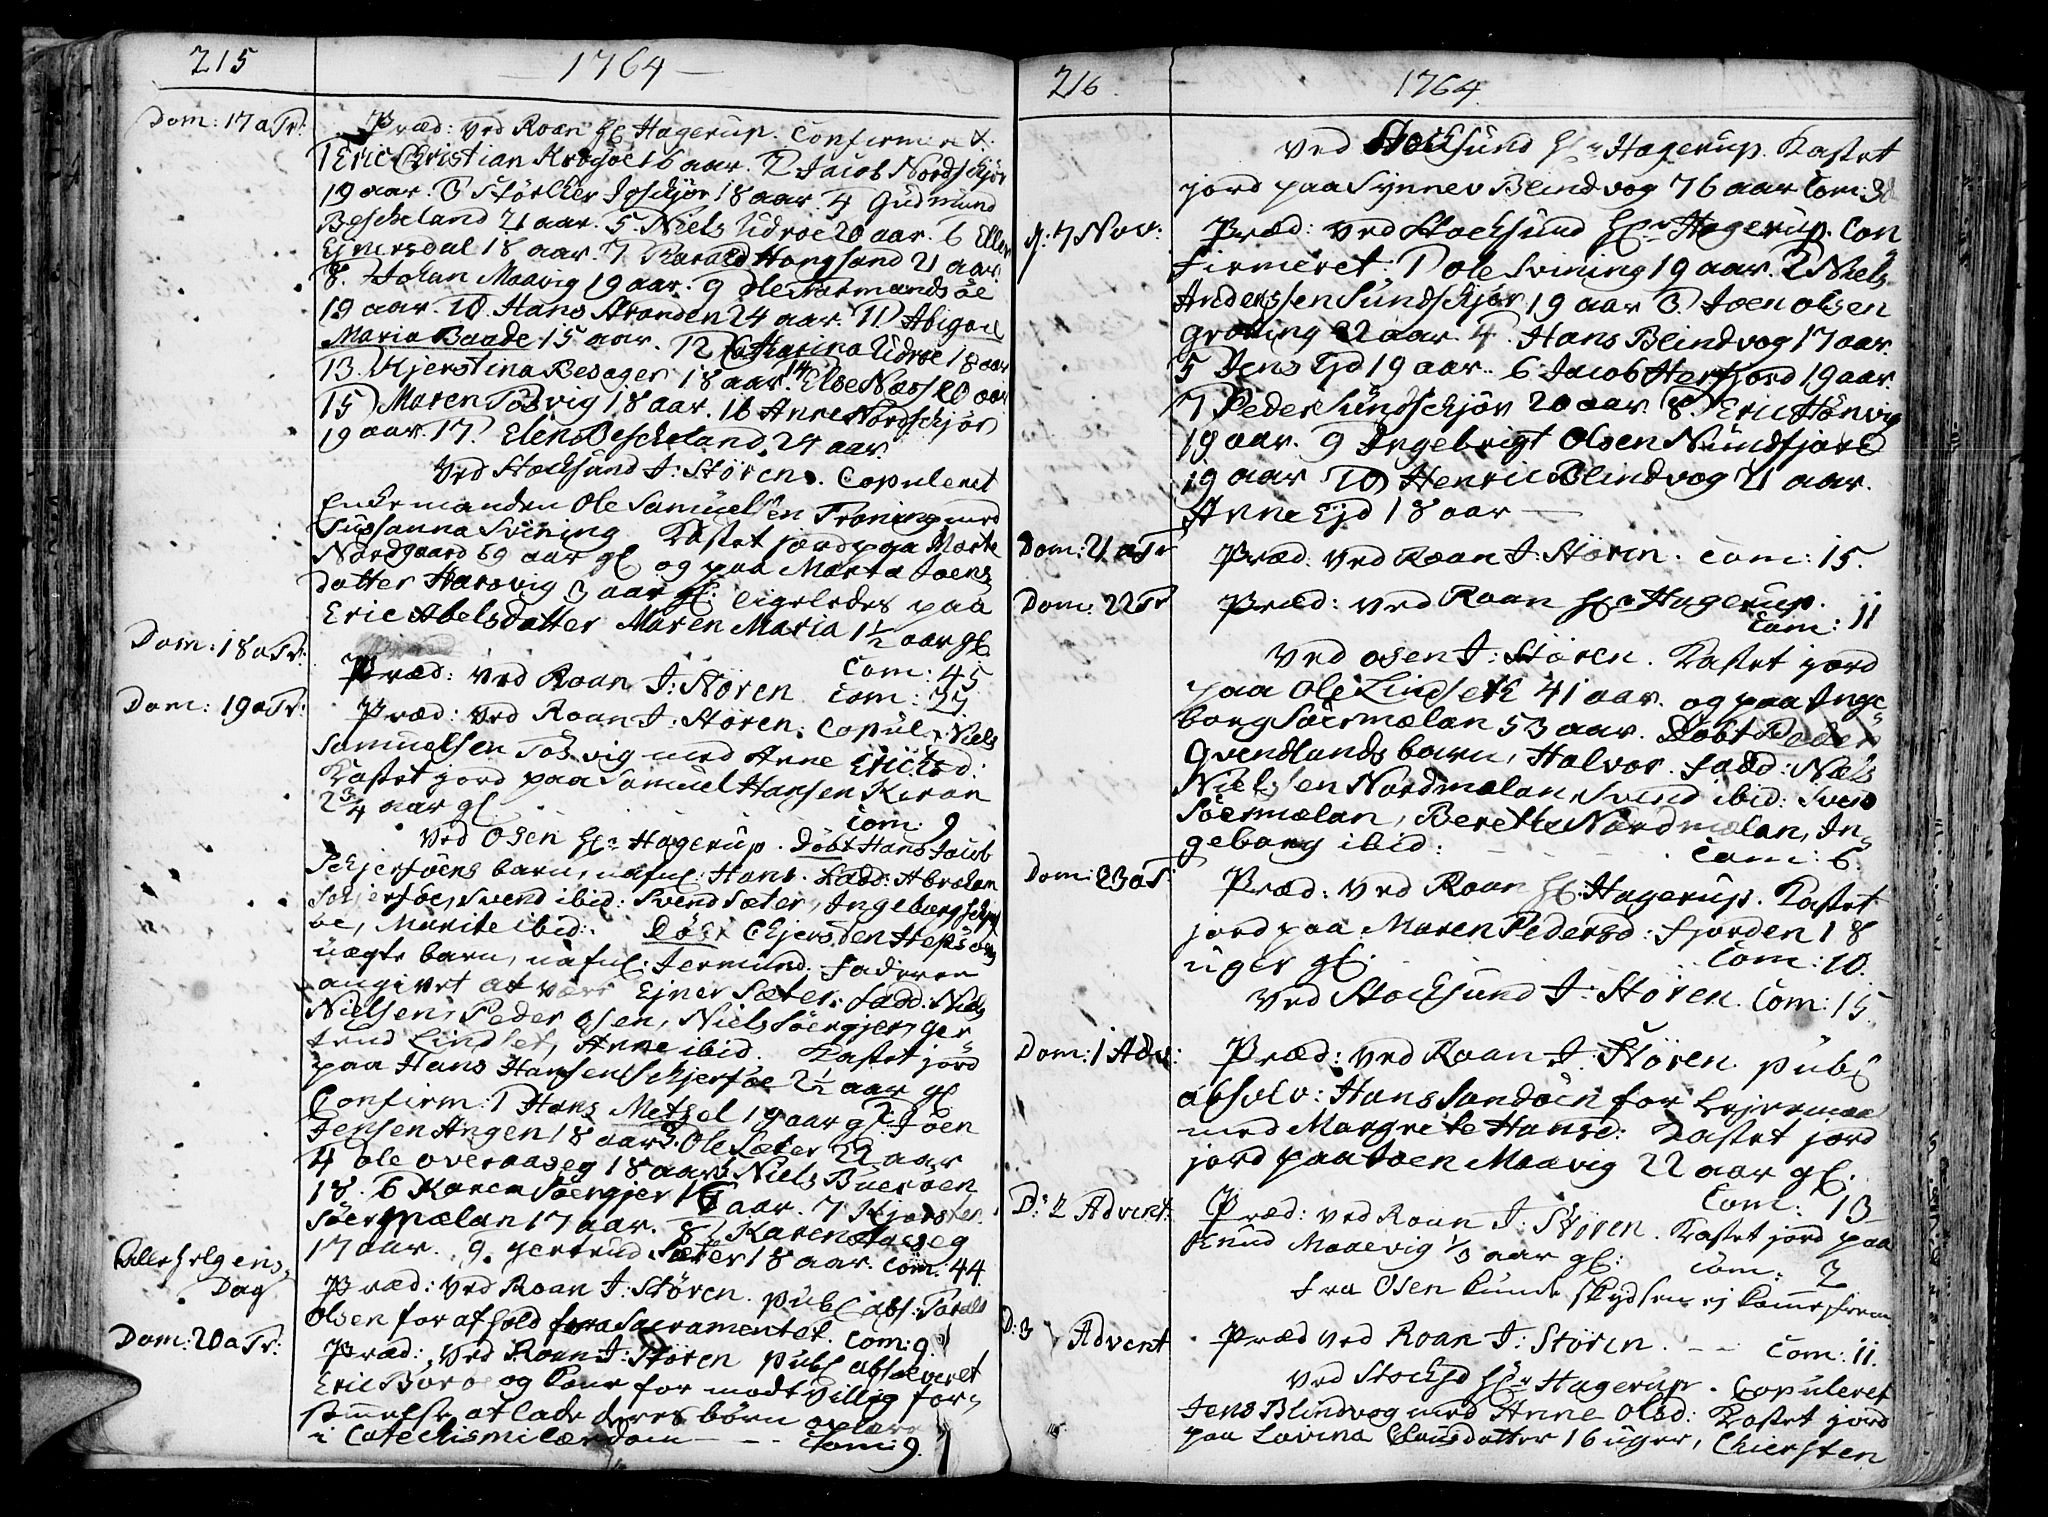 215
1764
Dom: 17 a Tr:
Præd: ved Roan H: Hagerup. Confirmeret.
1 Eric Christian Krogsøe 16 aar. 2 Jacob Nordschjør
19 aar. 3 Størcher Joschjør 18 aar. 4 Gudmund
Bescheland 21 aar. 5. Niels Udroe 20 aar. 6 Ellen
Ejnersdal 18 aar. 7 Harald Hongsand 21 aar.
8. Johan Maavig 19 aar. 9 Ole Normandsøe
19 aar. 10. Hans Stranden 24 aar. 11. Abigael
Maria Baade 15 aar. 12 Catharina Udroe 18 aar
13. Kjerstina Besager 18 aar. 14 Else Næss 20 aar
15 Maren Tosvig 18 aar. 16 Anne Nordschjør
19 aar. 17. Elen Bescheland 24 aar.
Ved Stocksund J: Støren. Copuleret
Enkemanden Ole Samuelsen Troning med
Sussanna Svining. Kastet jord paa Marte
Nordgaard 69 aar gl og paa Marta Joens
datter Harsvig 3 aar gl: ligeledes paa
Eric Abelsdatter Maren Maria 1½ aar gl
Com: 45
Dom: 18 a Tr:
Præd: ved Roan J: Støren Com: 37.
Dom: 19 a Tr:
Præd: ved Roan J. Støren. Copul: Niels
Samuelsen Tosvig med Anne Ericksd:
Kastet jord paa Samuel Hansen Kiran
2¾ aar gl. Com: 9
Ved Osen Hr Hagerup. Døbt Hans Jacob
Schjersøens barn, nafnl: Hans. Fadd: Abraham
Schjersøe, Svend ibid: Svend Sæter, Ingeborg Schjers
øe, Marite ibid: Døbt Chjersten Hepsøens
uægte barn, nafnl: Jermund. Faderen
angivet at være Ejner Sæter. fadd: Niels
Nielsen, Peder Osen, Niels Søergjer, Ger
trud Lindset, Anne ibid. Kastet jord
paa Hans Hansen Schjersøe 2½ aar gl
Confirm: 1 Hans Metzel 19 aar gl 2. Joen
Jensen Angen 18 aar 3. Ole Sæter 22 aar
4 Ole Overaaseg 18 aar 5 Niels Buerøen
18. 6 Karen Søergjer 16 aar. 7 Kjersten
Søermælan 17 aar. 8 Karen Aaseg
17 aar. 9. Gertrud Sæter 18 aar. Com: 44.
Alle Helgens
Dag
Præd: ved Roan J: Støren. publ abs: Torals
Olsen for afhold fra Sacramentet. Com: 9
Dom: 20 a Tr:
Præd: ved Roan J: Støren publ absolveret
Eric Boroe og Kone for modtvillig for-
sømmelse at lade deres børn oplære
i Catechismi lærdom - - - Com: 9.
216.
1764.
Ved Stocksund Hr Hagerup. Kastet
jord paa Synnev Blindvog 76 aar Com: 32
d: 7 Nov:
Præd: ved Stocksund Hr Hagerup. Con
firmeret: 1 Ole Svining 19 aar. 2 Niels
Anderssen Sundschjør 19 aar 3 Joen Olsen
Grotting 22 aar. 4. Hans Blindvog 17 aar.
5 Jens Ejd 19 aar. 6 Jacob Herfjord 19 aar
7 Peder Sundschjør 20 aar. 8. Eric Hønvig
19 aar. 9 Ingebrigt Olsen Nundfjord
19 aar 10 Henric Blindvog 21 aar.
Anne Ejd 18 aar —
Dom: 21 a Tr
Præd: ved Roan J: Støren. Com: 15.
Dom: 22 Tr
Præd: ved Roan Hr Hagerup.
Com: 11
Ved Osen J: Støren. Kastet jord
paa Ole Lindseth 41 aar. og paa Inge
borg Søermælan 53 aar. Døbt Peder
Qvendlands barn, Halvor. fadd: Niels
Nielssen Nordmælan, Svend ibid: Svend
Søermælan, Berette Nordmælan, In
geborg ibid: - - - Com: 6.
Dom: 23 a T:
Præd: ved Roan H: Hagerup. Kastet
jord paa Maren Pedersd: Fjorden 18
uger gl. Com: 10.
Ved Stocksund J: Støren. Com: 15.
Dom: 1 Adv:
Præd: ved Roan J: Støren. publ
absolv: Hans Sandøen for Lejermaal
med Margrete Hansd: Kastet jord
jord paa Joen Maavig 22 aar gl.
Com: 13
D: 2 Advent:
Præd: ved Roan J: Støren. Kastet jord paa
Knud Maaevig ⅓ aar gl: Com: 2
fra Osen kunde skydsen ej kome frem
D: 3 Advent
Præd ved Roan J: Støren. - - Com: 11.
Ved Stocksd Hr Hagerup. Copuleret
Jens Blindvog med Anne Olsd: Kastet jord
paa Lovina Clausdatter 16 uger, Chiersten